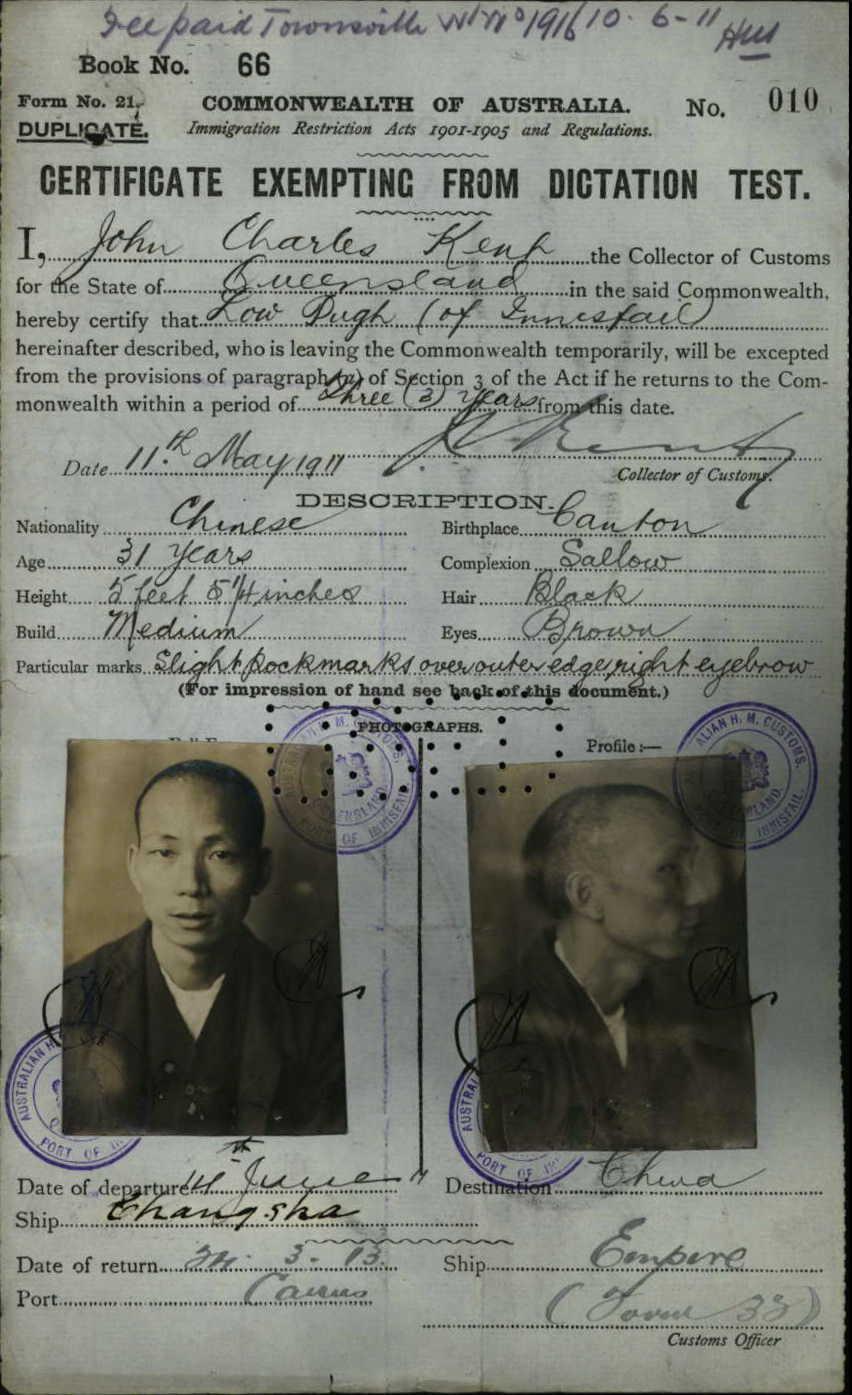 Fee paid Townsville No 1916 10-6-11
Book No. 66
Form No. 21.
DUPLICATE.
COMMONWEALTH OF AUSTRALIA.
No. 010
Immigration Restriction Acts 1901-1905 and Regulations.
CERTIFICATE EXEMPTING FROM DICTATION TEST.
I, John Charles Kent the Collector of Customs
for the State of Queensland in the said Commonwealth,
hereby certify that Low Pugh (of Innisfail)
hereinafter described, who is leaving the Commonwealth temporarily, will be excepted
from the provisions of paragraph (a) of Section 3 of the Act if he returns to the Com-
monwealth within a period of Three (3) Years from this date.
Date 11th May 1911
Collector of Customs.
DESCRIPTION.
Nationality Chinese Birthplace Canton
Age 31 years Complexion Sallow
Height 5 feet 5 1/4 inches Hair Black
Build Medium Eyes Brown
Particular marks Slight pockmarks over outer edge right eyebrow
(For impression of hand see back of this document.)
PHOTOGRAPHS.
Profile:—
AUSTRALIAN H. M. CUSTOMS.
QUEENSLAND.
PORT OF INNISFAIL
ALIAN H. M. CUSTOMS.
INNISFAIL.
AUSTRALIAN H
PORT OF
AUSTRAL
PORT OF
Date of departure June Destination China
Ship Changsha
Date of return 3. 13. Ship Empire
Port Cairns (Form 33)
Customs Officer